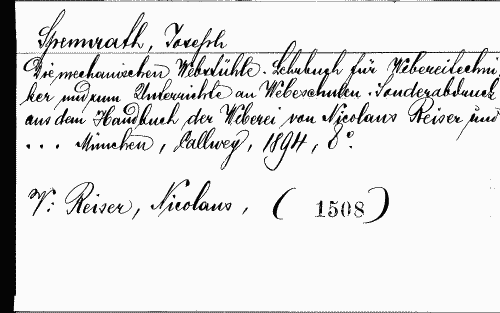 Spennrath, Joseph
Die mechanischen Webstühle. Lehrbuch für Webereitechni
ker und zum Unterrichte an Webeschulen. Sonderabdruck
aus dem Handbuch der Weberei von Nicolaus Reiser und
... München, Callwey, 1894, 8°.
V: Reiser, Nicolaus, (1508)